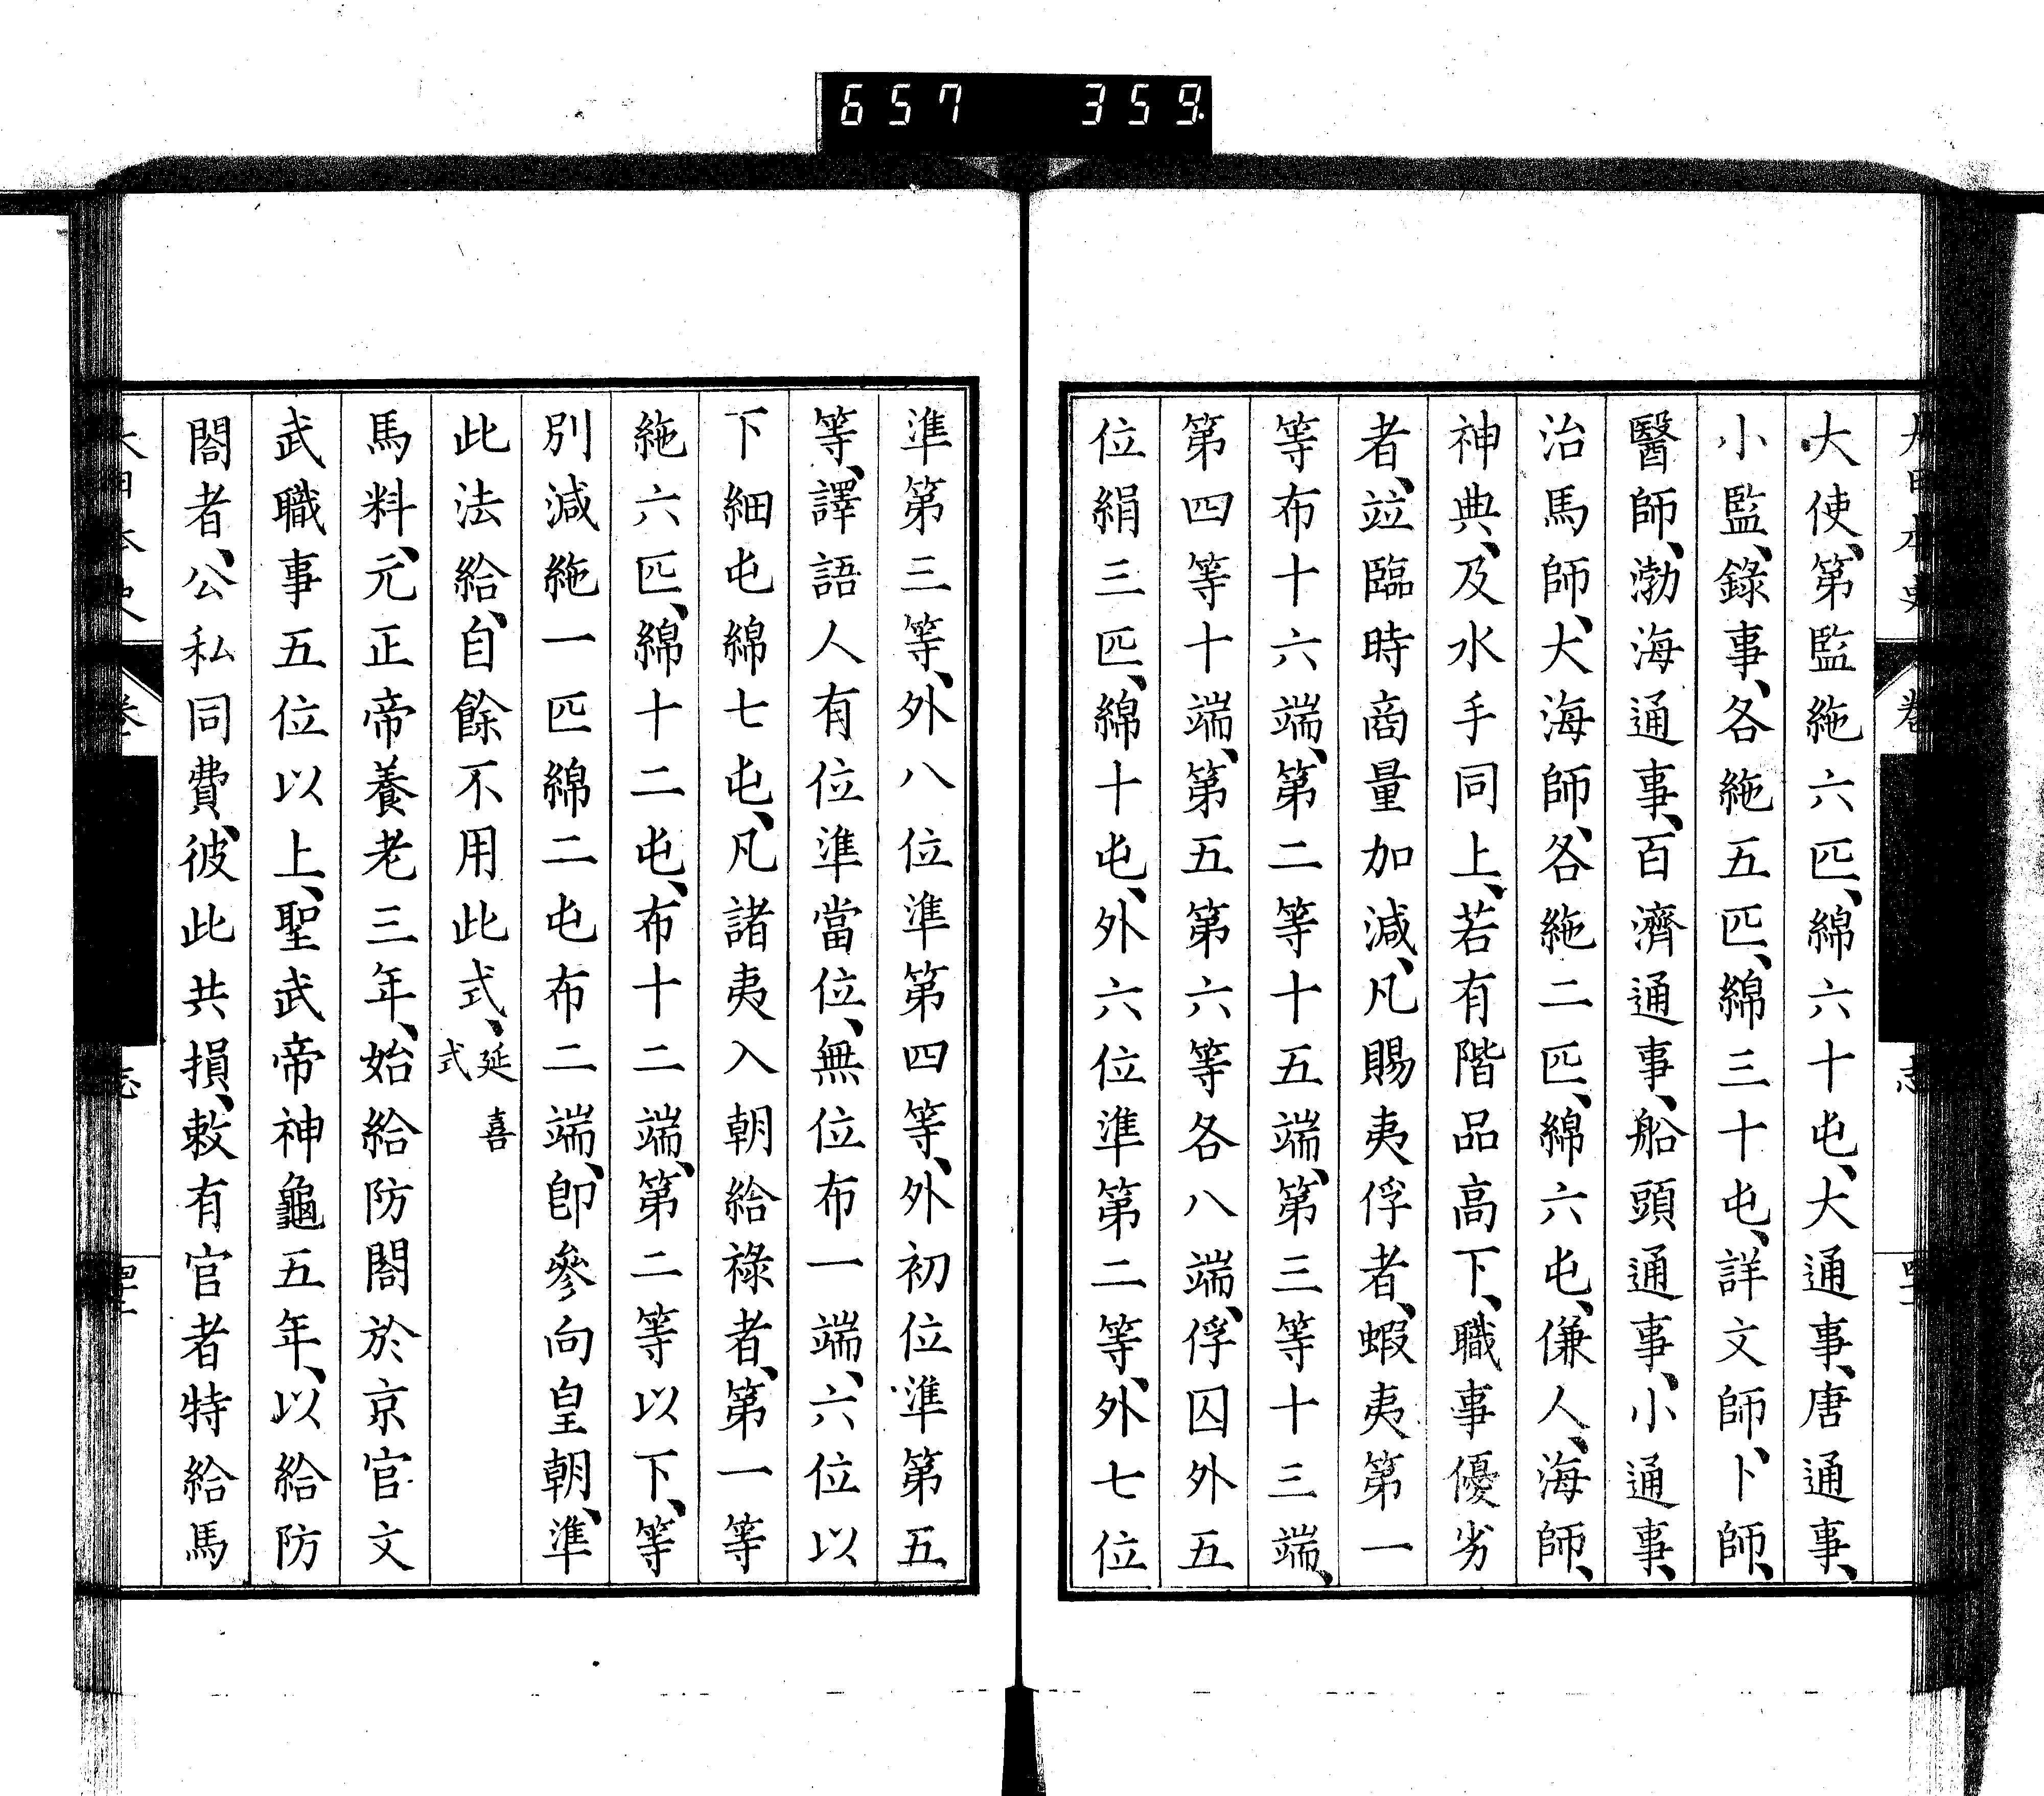 657 359
大使、第監絁六匹、綿六十屯、大通事、唐通事、
小監、錄事、各絁五匹、綿三十屯、詳文師、卜師、
醫師、渤海通事、百濟通事、船頭通事、小通事、
治馬師、犬海師、各絁二匹、綿六屯、傔人、海師、
神典、及水手同上、若有階品高下、職事優劣
者、竝臨時商量加減、凡賜夷俘者、蝦夷第一
等布十六端、第二等十五端、第三等十三端、
第四等十端、第五第六等各八端、俘囚外五
位絹三匹、綿十屯、外六位準第二等、外七位
準第三等、外八位準第四等、外初位準第五
等、譯語人有位準當位、無位布一端、六位以
下細屯綿七屯、凡諸夷入朝給祿者、第一等
絁六匹、綿十二屯、布十二端、第二等以下、等
別減絁一匹綿二屯布二端、卽參向皇朝、準
此法給、自餘不用此式、延喜式
馬料、元正帝養老三年、始給防閤於京官文
武職事五位以上、聖武帝神龜五年、以給防
閤者、公私同費、彼此共損、敕有官者特給馬